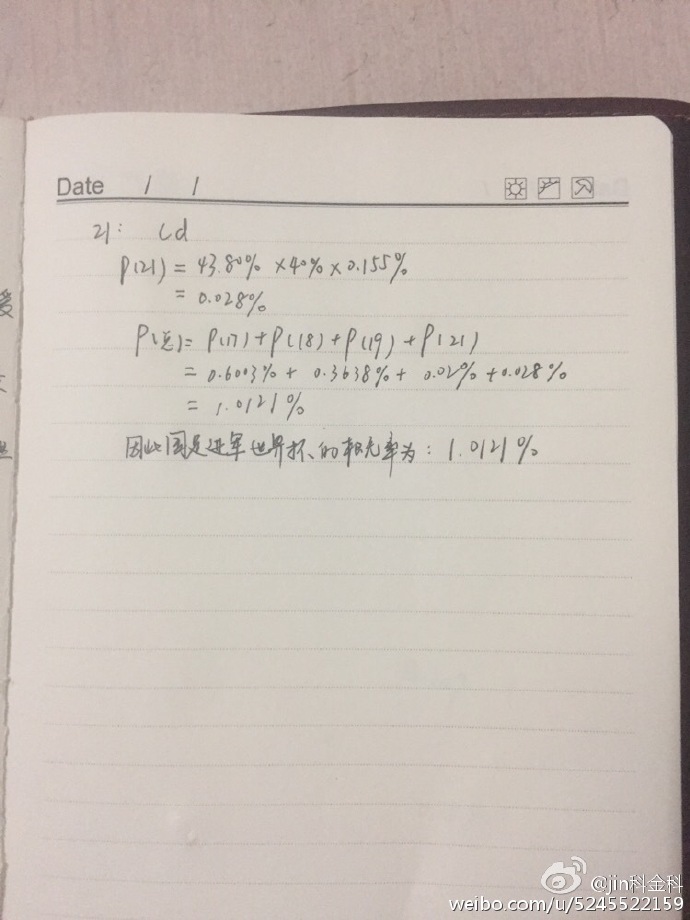 Date / /
21: Cd
P(21) = 43.80% × 40% × 0.155%
= 0.028%
P(总) = P(17) + P(18) + P(19) + P(21)
= 0.6003% + 0.3638% + 0.02% + 0.028%
= 1.0121%
因此国足进军世界杯的概率为: 1.0121%
@jin科金科
weibo.com/u/5245522159